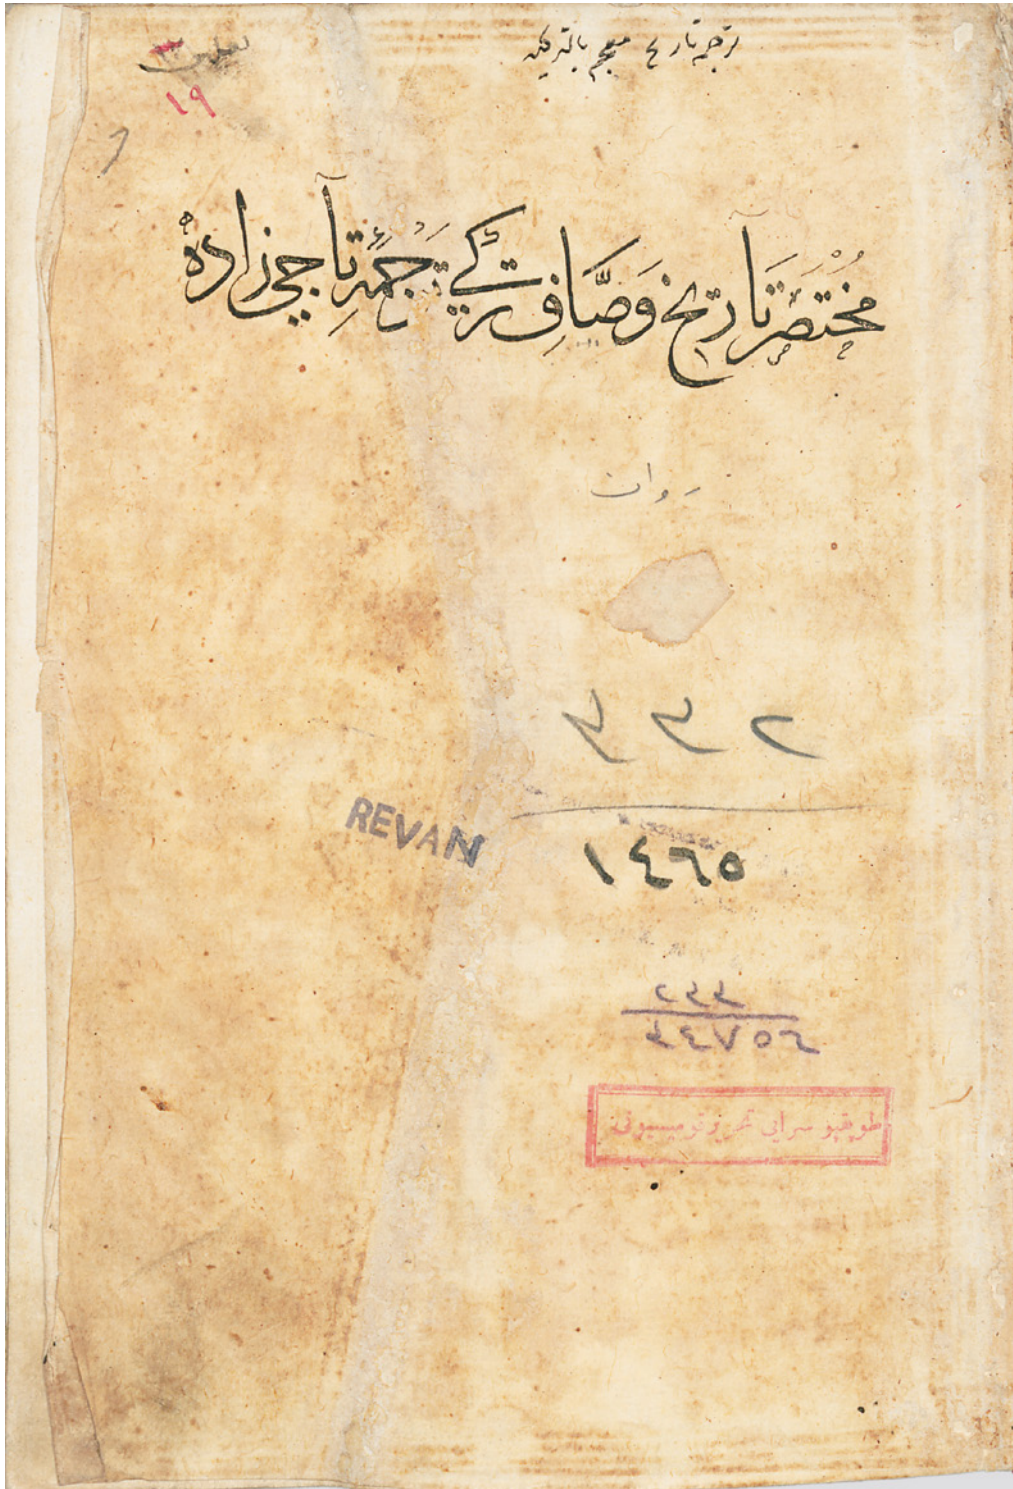 ترجمه تاریخ معجم بالترکیه
١٩
مُختصر تاریخ وصّاف ترکی ترجمهٔ تاجی زاده
روان
٢٣٣
REVAN
١٤٦٥
٢٣٣
٣٤٧٥٤
طوپقپو سرایی تحریر قومیسیونی